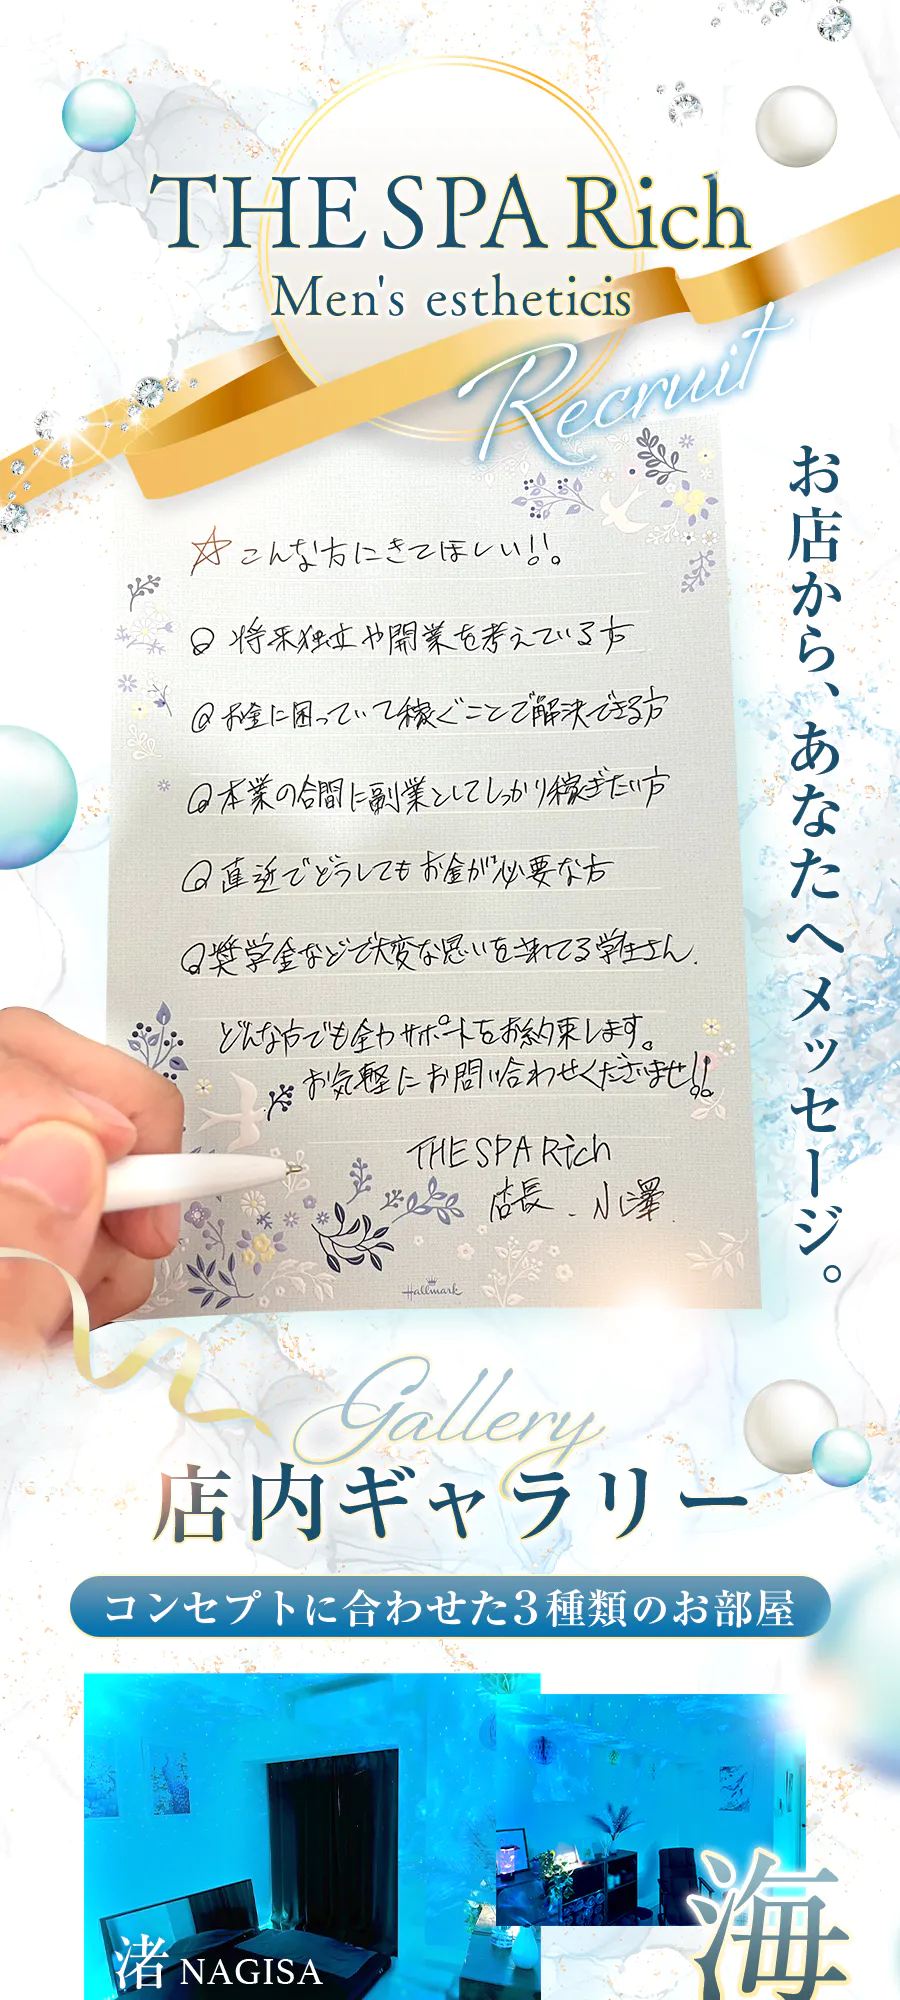 THE SPA Rich
Men's estheticis
Recruit
お店から、あなたへメッセージ。
☆こんな方にきてほしい!!。
将来独立や開業を考えている方
お金に困っていて稼ぐことで解決できる方
本業の合間に副業としてしっかり稼ぎたい方
直近でどうしてもお金が必要な方
奨学金などで大変な思いをされてる学生さん.
どんな方でも全力サポートをお約束します。
お気軽にお問い合わせくださいませ!!
THE SPA Rich
店長. 小澤.
Hallmark
Gallery
店内ギャラリー
コンセプトに合わせた3種類のお部屋
渚 NAGISA
海